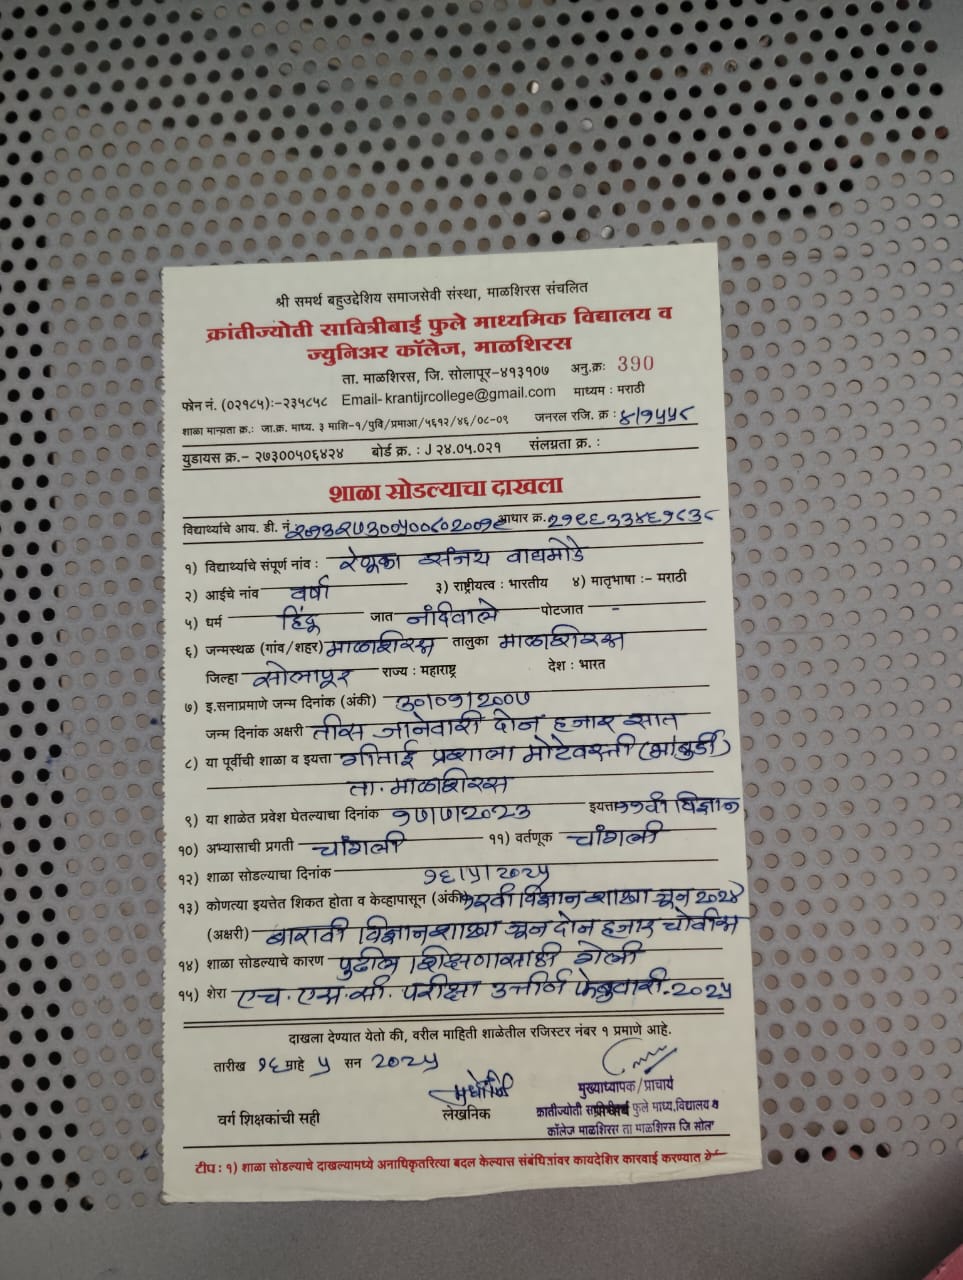 श्री समर्थ बहुउद्देशिय समाजसेवी संस्था, माळशिरस संचलित
क्रांतीज्योती सावित्रीबाई फुले माध्यमिक विद्यालय व
ज्युनिअर कॉलेज, माळशिरस
ता. माळशिरस, जि. सोलापूर-४१३१०७ अनु.क्रः 390
फोन नं. (०२१८५):-२३५८५८ Email- krantijrcollege@gmail.com माध्यम : मराठी
शाळा मान्यता क्र.: जा.क्र. माध्य. ३ माशि-१/पुवि/प्रमाआ/५६१२/४६/०८-०९ जनरल रजि. क्र : ४/१५५८
युडायस क्र.- २७३००५०६४२४ बोर्ड क्र. : J २४.०५.०२१ संलग्नता क्र. :
शाळा सोडल्याचा दाखला
विद्यार्थ्याचे आय. डी. नं. आधार क्र. २१९६३३४६१८३८
१) विद्यार्थ्याचे संपूर्ण नांव : रेणूका संजय वाघमोडे
२) आईचे नांव वर्षा ३) राष्ट्रीयत्व : भारतीय ४) मातृभाषा :- मराठी
५) धर्म हिंदू जात नंदिवाले पोटजात -
६) जन्मस्थळ (गांव/शहर) माळशिरस तालुका माळशिरस
जिल्हा सोलापूर राज्य : महाराष्ट्र देश : भारत
७) इ.सनाप्रमाणे जन्म दिनांक (अंकी) ३०/०१/२००७
जन्म दिनांक अक्षरी तीस जानेवारी दोन हजार सात
८) या पूर्वीची शाळा व इयत्ता गीताई प्रशाला मोटेवस्ती (भांबुर्डी)
ता. माळशिरस
९) या शाळेत प्रवेश घेतल्याचा दिनांक १७/७/२०२३ इयत्ता ११वी विज्ञान
१०) अभ्यासाची प्रगती चांगली ११) वर्तणूक चांगली
१२) शाळा सोडल्याचा दिनांक १६/५/२०२५
१३) कोणत्या इयत्तेत शिकत होता व केव्हापासून (अंकी) १२वी विज्ञान शाखा जून २०२४
(अक्षरी) बारावी विज्ञान शाखा जून दोन हजार चोवीस
१४) शाळा सोडल्याचे कारण पुढील शिक्षणासाठी गेली
१५) शेरा एच. एस. सी. परीक्षा उत्तीर्ण फेब्रुवारी-२०२५
दाखला देण्यात येतो की, वरील माहिती शाळेतील रजिस्टर नंबर १ प्रमाणे आहे.
तारीख १६ माहे ५ सन २०२५
वर्ग शिक्षकांची सही लेखनिक मुख्याध्यापक/प्राचार्य
प्राचार्य
क्रांतीज्योती सावित्रीबाई फुले माध्य.विद्यालय व
कॉलेज माळशिरस ता माळशिरस जि सोला
टीप : १) शाळा सोडल्याचे दाखल्यामध्ये अनाधिकृतरित्या बदल केल्यास संबंधितांवर कायदेशिर कारवाई करण्यात